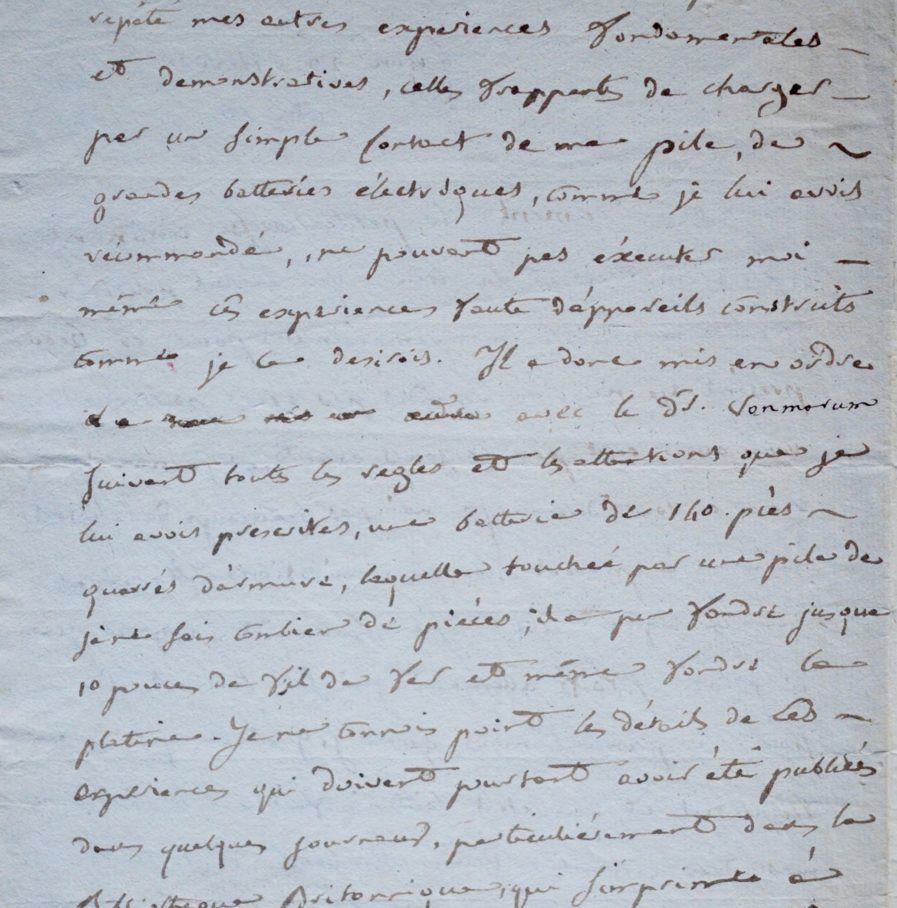 répété mes autres experiences fondamentales
et demonstratives, celles frappantes de charger
par un simple contact de ma pile, de
grandes batteries électriques, comme je lui avois
recommandé, ne pouvant pas éxecuter moi
même ces experiences faute d'appareils construits
comme je le desirois. Il a donc mis en ordre
avec le Dr. Vanmarum
suivant toutes les regles et les attentions que je
lui avois prescrites, une batterie de 140 piès
quarrés d'armure, laquelle touchée par une pile de
je ne sais combien de pièces, il a pu fondre jusque
10 pouces de fil de fer et même fondre le
platine. Je ne connois point les détails de ces
experiences qui doivent pourtant avoir été publiées
dans quelques journaux, particulièrement dans la
Bibliotheque Britannique, qui s'imprime à